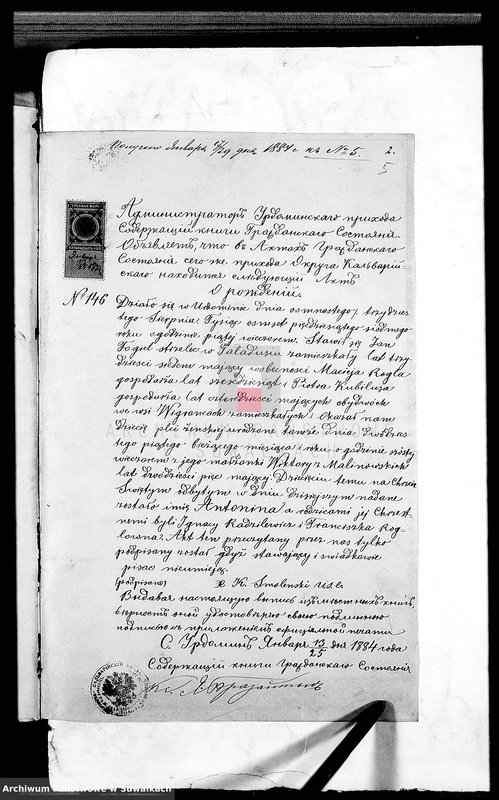 Получено Января 17/29 дня 1884 г. къ № 5.
2.
5
Администраторъ Урдоминскаго прихода
Содержащій книги Гражданскаго Состоянія.
Объявляетъ, что въ Актахъ Гражданскаго
Состоянія сего же прихода Округа Кальварій-
скаго находится слѣдующій Актъ
О рожденіи.
№ 146
Działo się w Udominie dnia osmnastego/trzydzies-
tego Sierpnia Tysiąc osmset pięćdziesiątego siódmego
roku o godzinie piątej wieczorem. Stawił się Jan
Fogiel strzelec w zamieszkały lat trzy-
dzieści siedem mający w obecności Macieja Rogla
gospodarza lat sześćdziesiąt i Piotra Kubilusa
gospodarza lat czterdzieści mających obydwóch
we wsi Wigrańcach zamieszkałych i okazał nam
dziecię płci żeńskiej urodzone tamże dnia dwódzies-
tego piątego bieżącego miesiąca i roku o godzinie szóstej
wieczorem z jego małżonki Wiktoryi z Malinowskich
lat dwadzieścia pięć mającej. Dziecięciu temu na Chrzcie
Świętym odbytym w dniu dzisiejszym nadane
zostało imię Antonina a rodzicami jej Chrzest-
nemi byli Ignacy Radzilewicz i Franciszka Rog-
lowna. Akt ten przeczytany przez nas tylko
podpisany został gdyż stawający i świadkowie
pisać nieumieją.
(podpisano) X K. Smolenski
Выдавая настоящую выпись изъ мѣстныхъ книгъ,
вѣрность оной удостовѣряю своею подлинною
подписью съ приложеніемъ официальной печати
С. Урдоминъ Января 13/25 дня 1884 года
Содержащій книги Гражданскаго Состоянія
Archiwum Państwowe w Suwałkach